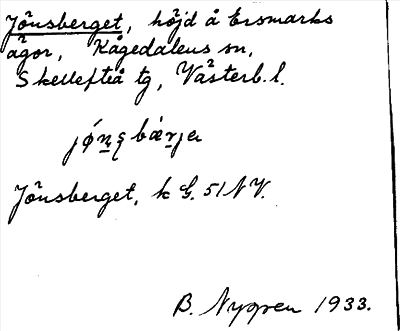 Jönsberget, höjd å Ersmarks
ägor, Kågedalens sn,
Skellefteå tg, Västerb. l.
Jönsberget, k G. 51 NV.
B. Nygren 1933.